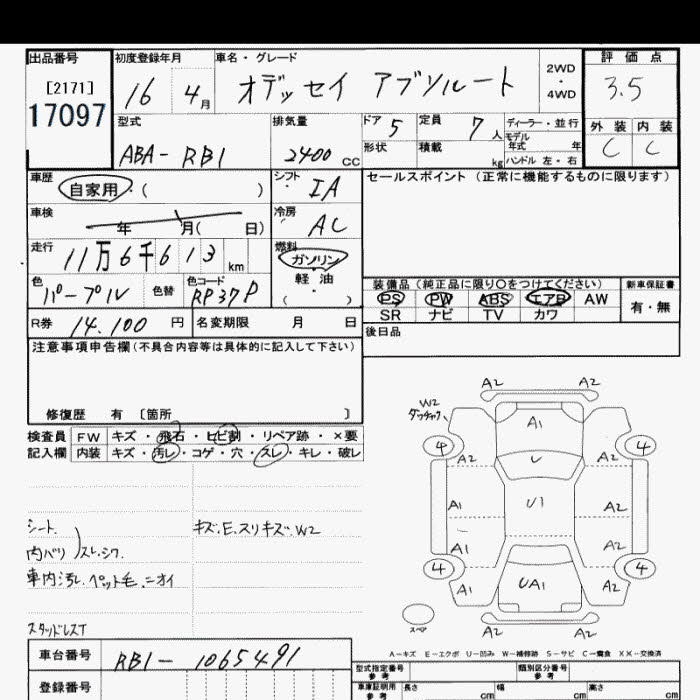 出品番号 初度登録年月 車名・グレード 2WD・4WD 評価点
[2171] 17097 16 4月 オデッセイ アブソルート 3.5
型式 排気量 ドア 5 定員 7人 ディーラー・並行 外装 内装
ABA-RB1 2400 CC 形状 積載 kg モデル年式 年 ハンドル 左・右 C C
車歴 自家用・( ) シフト IA セールスポイント (正常に機能するものに限ります)
車検 年 月( 日) 冷房 AC
走行 11万6千613 km 燃料 ガソリン・軽油 ( )
色 パープル 色替 色コード RP37P 装備品 (純正品に限り○をつけてください) 新車保証書
PS PW ABS エアB AW 有・無
SR ナビ TV カワ
R券 14,100 円 名変期限 月 日 後日品
注意事項申告欄(不具合内容等は具体的に記入して下さい)
修復歴 有 〔箇所 〕
検査員 FW キズ・飛石・ヒビ割・リペア跡・×要
記入欄 内装 キズ・汚レ・コゲ・穴・スレ・キレ・破レ
シート、 キズ.E.スリキズ.W2
内バリ スレ.シワ
車内汚レ.ペット毛.ニオイ
スタッドレスT
車台番号 RB1-1065491
登録番号
A2 A2
W2
A1
4 4
A2 U A2
A1 U1 A2
A1 A2
4 4
A1 UA1 A2
スペア A2 A2
A-キズ E-エクボ U-凹み W-補修跡 S-サビ C-腐食 XX-交換済
型式指定番号 参考 類別区分番号 参考
車庫証明用 参考 長さ cm 幅 cm 高さ cm